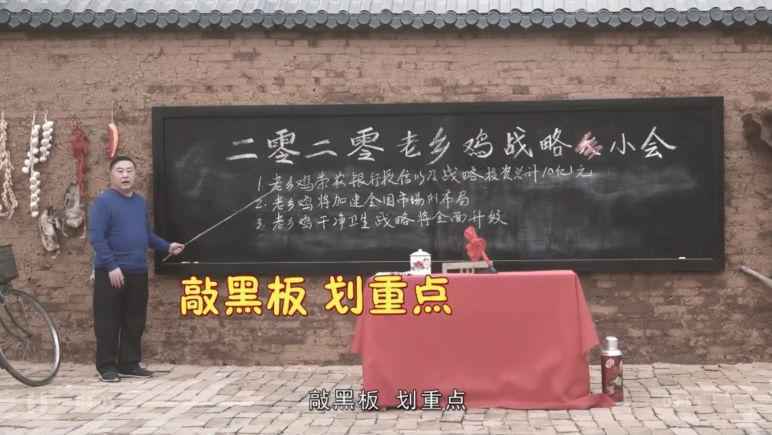 二零二零老乡鸡战略小会
1. 老乡鸡荣获银行授信以及战略投资总计10亿元
2. 老乡鸡将加速全国市场的布局
3. 老乡鸡干净卫生战略将全面升级
敲黑板 划重点
敲黑板 划重点